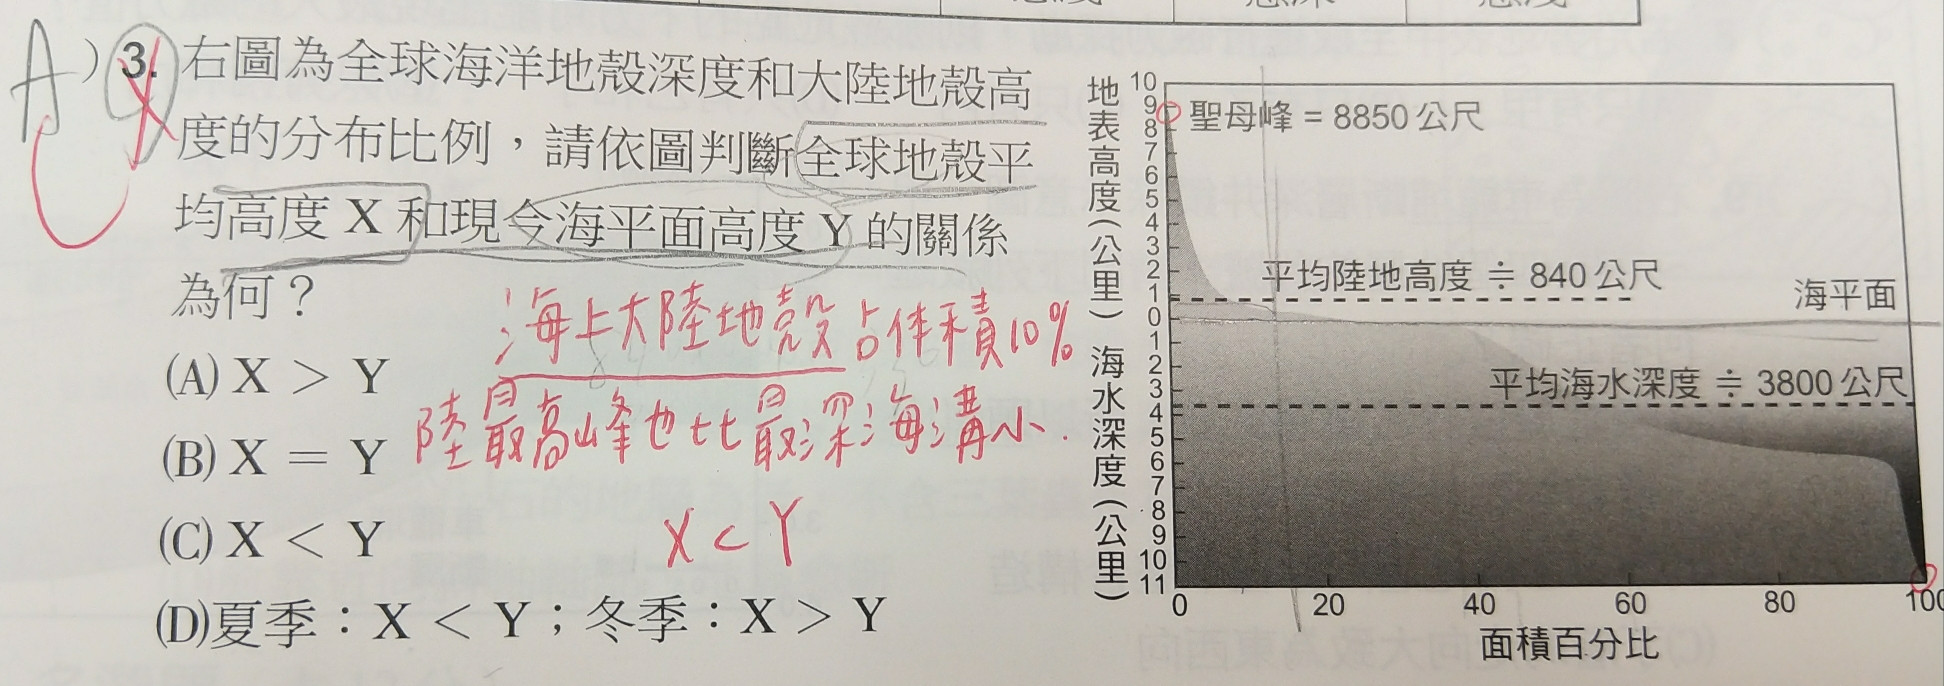 A）3. 右圖為全球海洋地殼深度和大陸地殼高
度的分布比例，請依圖判斷全球地殼平
均高度 X 和現今海平面高度 Y 的關係
為何？
海上大陸地殼占体積10%
(A) X > Y
陸最高峰也比最深海溝小.
(B) X = Y
(C) X < Y
X < Y
(D)夏季：X < Y；冬季：X > Y
地表高度(公里)
海水深度(公里)
10
9
8
7
6
5
4
3
2
1
0
1
2
3
4
5
6
7
8
9
10
11
聖母峰 = 8850 公尺
平均陸地高度 ≑ 840 公尺
海平面
平均海水深度 ≑ 3800 公尺
0 20 40 60 80 100
面積百分比